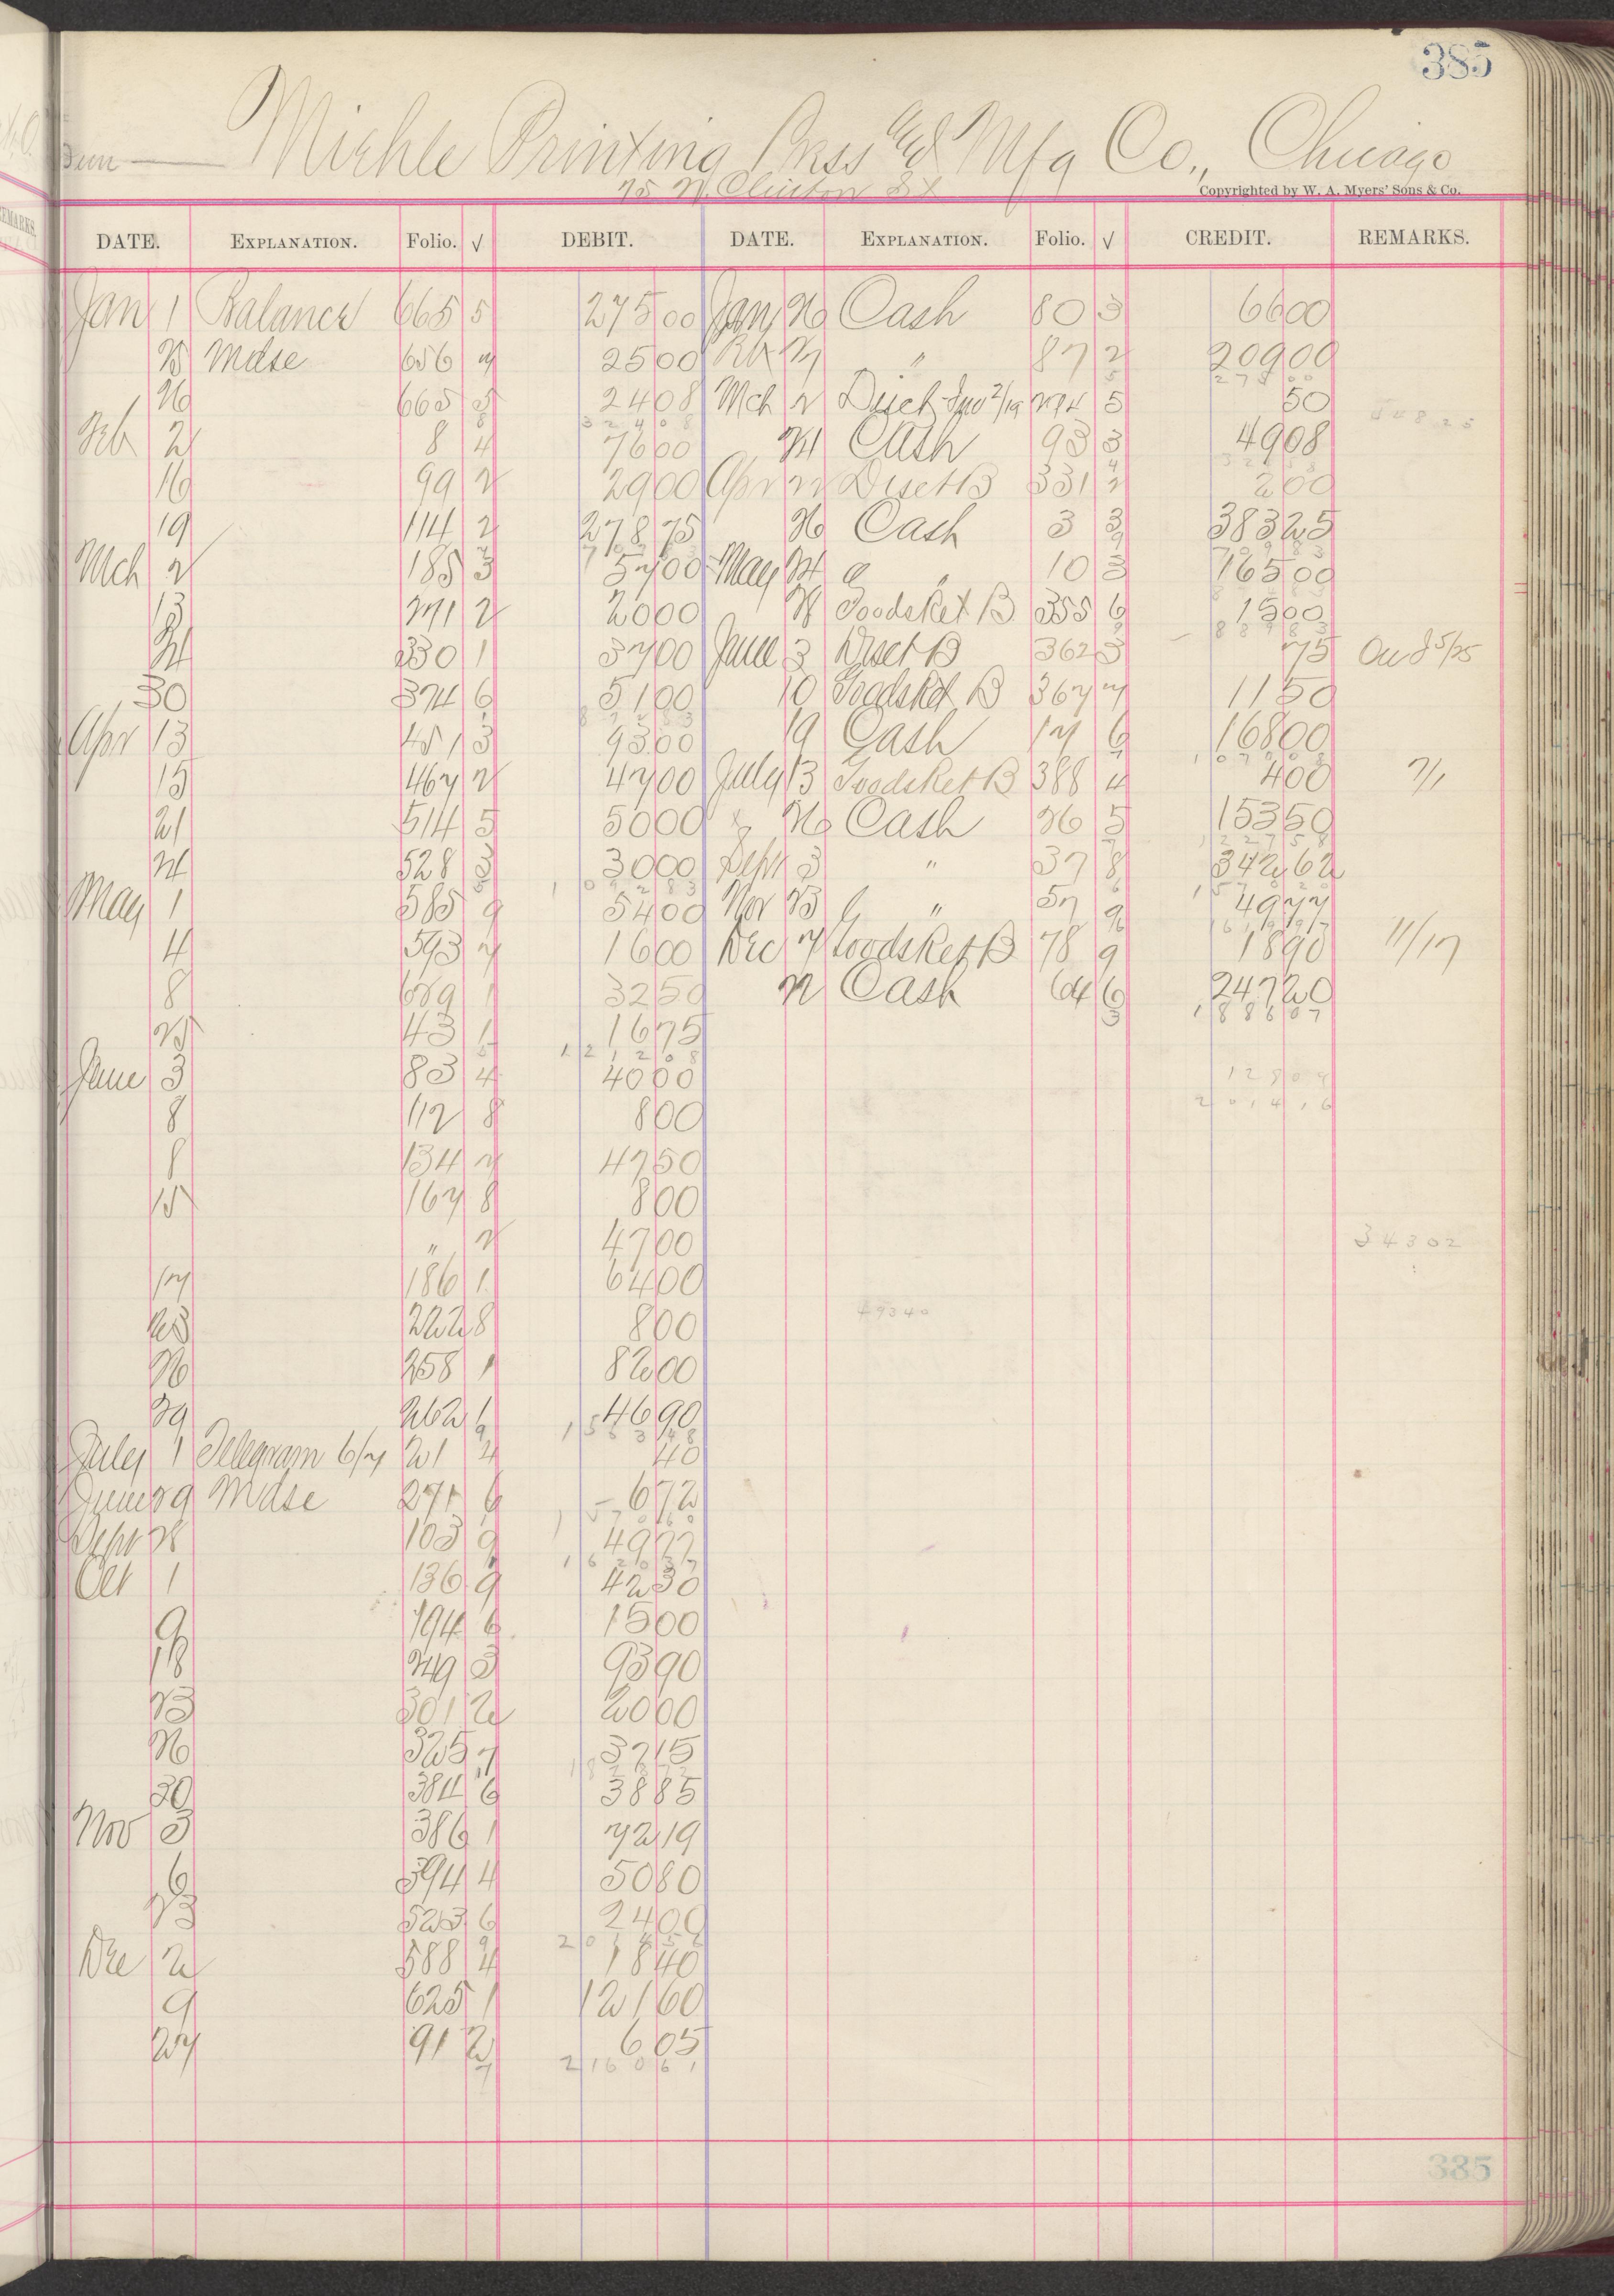 385
Miehle Printing Press and Mfg Co., Chicago
75 N. Clinton St
Copyrighted by W. A. Myers' Sons & Co.
DATE. EXPLANATION. Folio. √ DEBIT. DATE. EXPLANATION. Folio. √ CREDIT. REMARKS.
Jan 1 Balance 665 5 275 00 Jan 26 Cash 80 3 66 00
25 Mdse 656 7 25 00 27 " 87 2 209 00
26 665 5 24 08 Mch 2 5 50
3 2 4 0 8
Feb 2 8 4 76 00 24 Cash 93 3 49 08
16 99 2 29 00 Apr 22 Disct B 331 2 2 00
19 114 2 278 75 26 Cash 3 3 383 25
Mch 2 185 3 57 00 May 24 " 10 3 165 00
13 271 2 20 00 28 Goods Ret B 355 6 15 00
24 330 1 37 00 June 3 Disct B 362 3 75
30 374 6 51 00 10 Goods Ret B 367 7 11 50
Apr 13 451 3 93 00 19 Cash 17 6 168 00
15 467 2 47 00 July 13 Goods Ret B 388 4 4 00 7/1
21 514 5 50 00 26 Cash 26 5 153 50
24 528 3 30 00 Sept 3 " 37 8 342 62
May 1 585 9 54 00 Nov 23 " 57 9 49 77
4 593 7 16 00 Dec 7 Goods Ret B 78 9 18 90 11/17
8 689 1 32 50 22 Cash 64 6 247 20
1 8 8 6 0 7
25 43 1 16 75
1 2 1 2 0 8
June 3 83 4 40 00
2 0 1 4 1 6
8 112 8 8 00
8 134 7 47 50
15 167 8 8 00
" 2 47 00
34302
17 186 1 64 00
49340
23 222 8 8 00
26 258 1 82 00
29 262 1 46 90
July 1 Telegram 6/7 21 4 40
June 29 Mdse 271 6 6 72
Sept 28 103 9 49 77
Oct 1 136 9 42 30
9 194 6 15 00
18 249 3 93 90
23 301 2 20 00
26 325 7 37 15
30 384 6 38 85
Nov 3 386 1 72 19
6 394 4 50 80
23 523 6 24 00
Dec 2 588 4 18 40
9 625 1 121 60
27 91 2 6 05
2 1 6 0 6 1
385